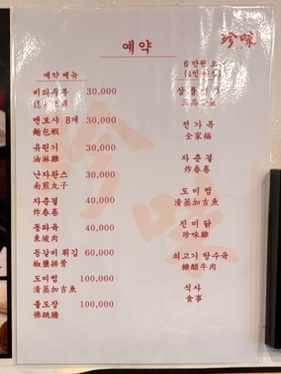 예약
珍味
예약 메뉴
30,000
멘보샤 8개 30,000
麵包蝦
유린기 30,000
油淋雞
난자완스 30,000
南煎丸子
자춘결 40,000
炸春卷
동파육 40,000
東坡肉
등갈비 튀김 60,000
椒鹽排骨
도미찜 100,000
清蒸加吉魚
불도장 100,000
佛跳牆
6만원
전가복
全家福
자춘결
炸春卷
도미찜
清蒸加吉魚
진미닭
珍味雞
쇠고기 탕수육
糖醋牛肉
식사
食事